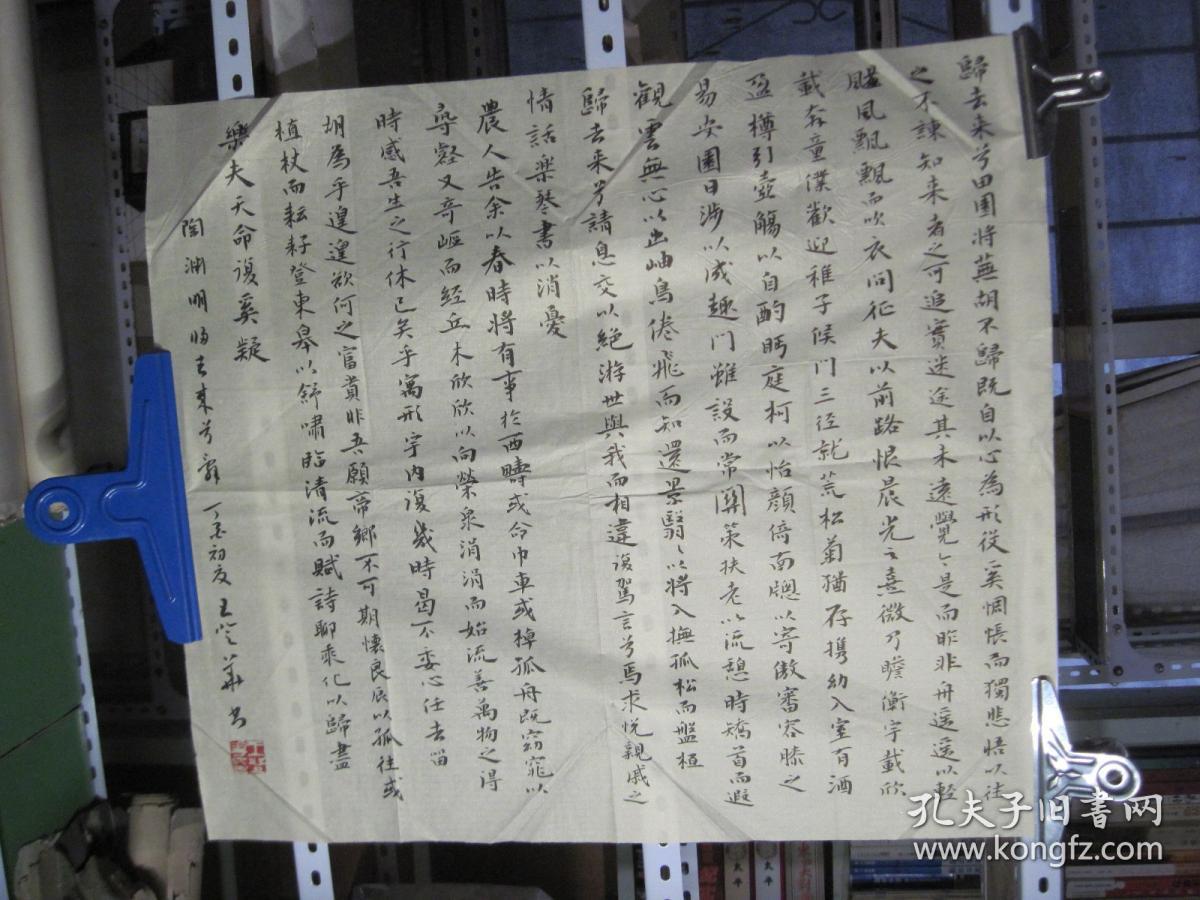 歸去来兮田園將蕪胡不歸既自以心為形役奚惆悵而獨悲悟以往
之不諫知来者之可追實迷途其未遠覺今是而昨非舟遥遥以輕
颺風飄飄而吹衣問征夫以前路恨晨光之熹微乃瞻衡宇載欣
載奔童僕歡迎稚子候門三径就荒松菊猶存攜幼入室有酒
盈樽引壺觴以自酌眄庭柯以怡顏倚南牕以寄傲審容膝之
易安園日涉以成趣門雖設而常関策扶老以流憩時矯首而遐
觀雲無心以出岫鳥倦飛而知還景翳翳以將入撫孤松而盤桓
歸去来兮請息交以絕游世與我而相違復駕言兮焉求悅親戚之
情話樂琴書以消憂
農人告余以春時將有事於西疇或命巾車或棹孤舟既窈窕以
尋壑又奇嶇而經丘木欣欣以向榮泉涓涓而始流善萬物之得
時感吾生之行休已矣乎寓形宇内復幾時曷不委心任去留
胡為乎遑遑欲何之富貴非吾願帝鄉不可期懷良辰以孤往或
植杖而耘耔登東皋以舒嘯臨清流而賦詩聊乘化以歸盡
樂夫天命復奚疑
陶渊明歸去来兮辭 丁丑初夏 王 華书
孔夫子旧书网
www.kongfz.com